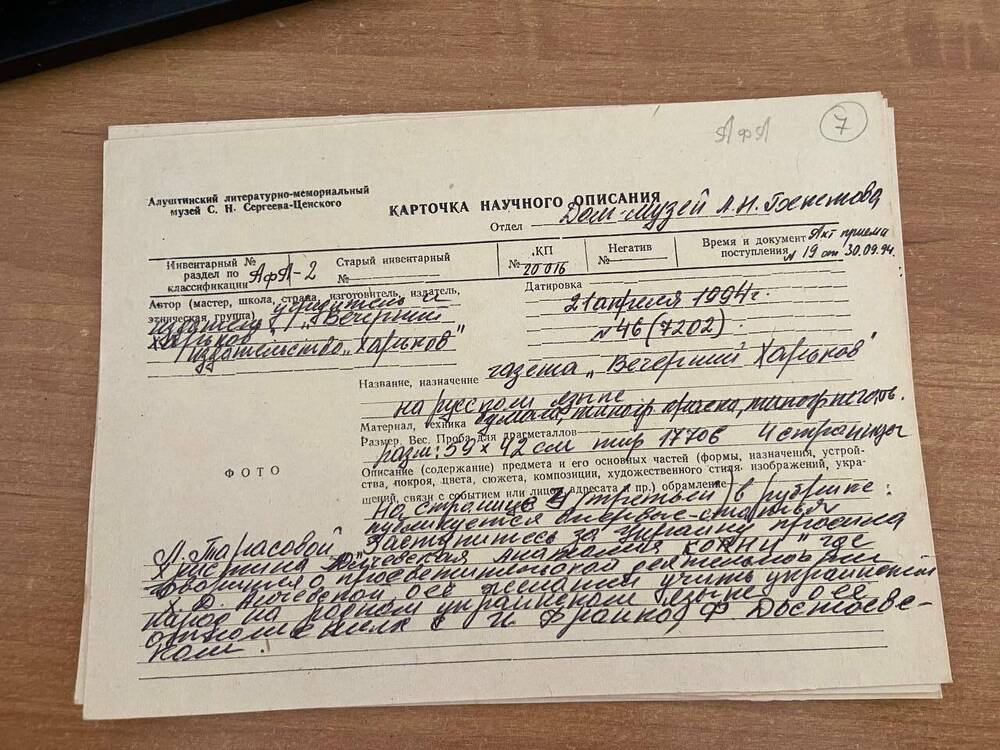 АфА 7
Алуштинский литературно-мемориальный
музей С. Н. Сергеева-Ценского
КАРТОЧКА НАУЧНОГО ОПИСАНИЯ
Отдел Дом-музей А.Н. Бекетова
Инвентарный №
раздел по
классификации АфА-2
Старый инвентарный
№
КП
№ 20016
Негатив
№
Время и документ Акт приема
поступления № 19 от 30.09.94.
Автор (мастер, школа, страна, изготовитель, издатель,
этническая группа) учредитель и
издатель „Вечерний
Харьков
издательство „Харьков"
Датировка
21 апреля 1994 г.
№ 46 (7202)
Название, назначение газета „Вечерний Харьков"
на русском языке
Материал, техника бумага, типогр краска, типогр печать.
Размер. Вес. Проба для драгметаллов
разм: 59 x 42 см тир 17706 4 страницы
ФОТО
Описание (содержание) предмета и его основных частей (формы, назначения, устрой-
ства, покроя, цвета, сюжета, композиции, художественного стиля, изображений, укра-
щений, связи с событием или лицом, адресата и пр.) обрамление
На странице 3 (третьей) в рубрике:
публикуется впервые – статья
Л. Тарасовой „Заступитесь за Украину просила
Христина Алчевская Анатолия Кони" где
говорится о просветительской деятельности
Х. Д. Алчевской, её желании учить украинский
народ на родном украинском языке, о её
отношениях к И. Франко, Ф. Достоевс-
кому.